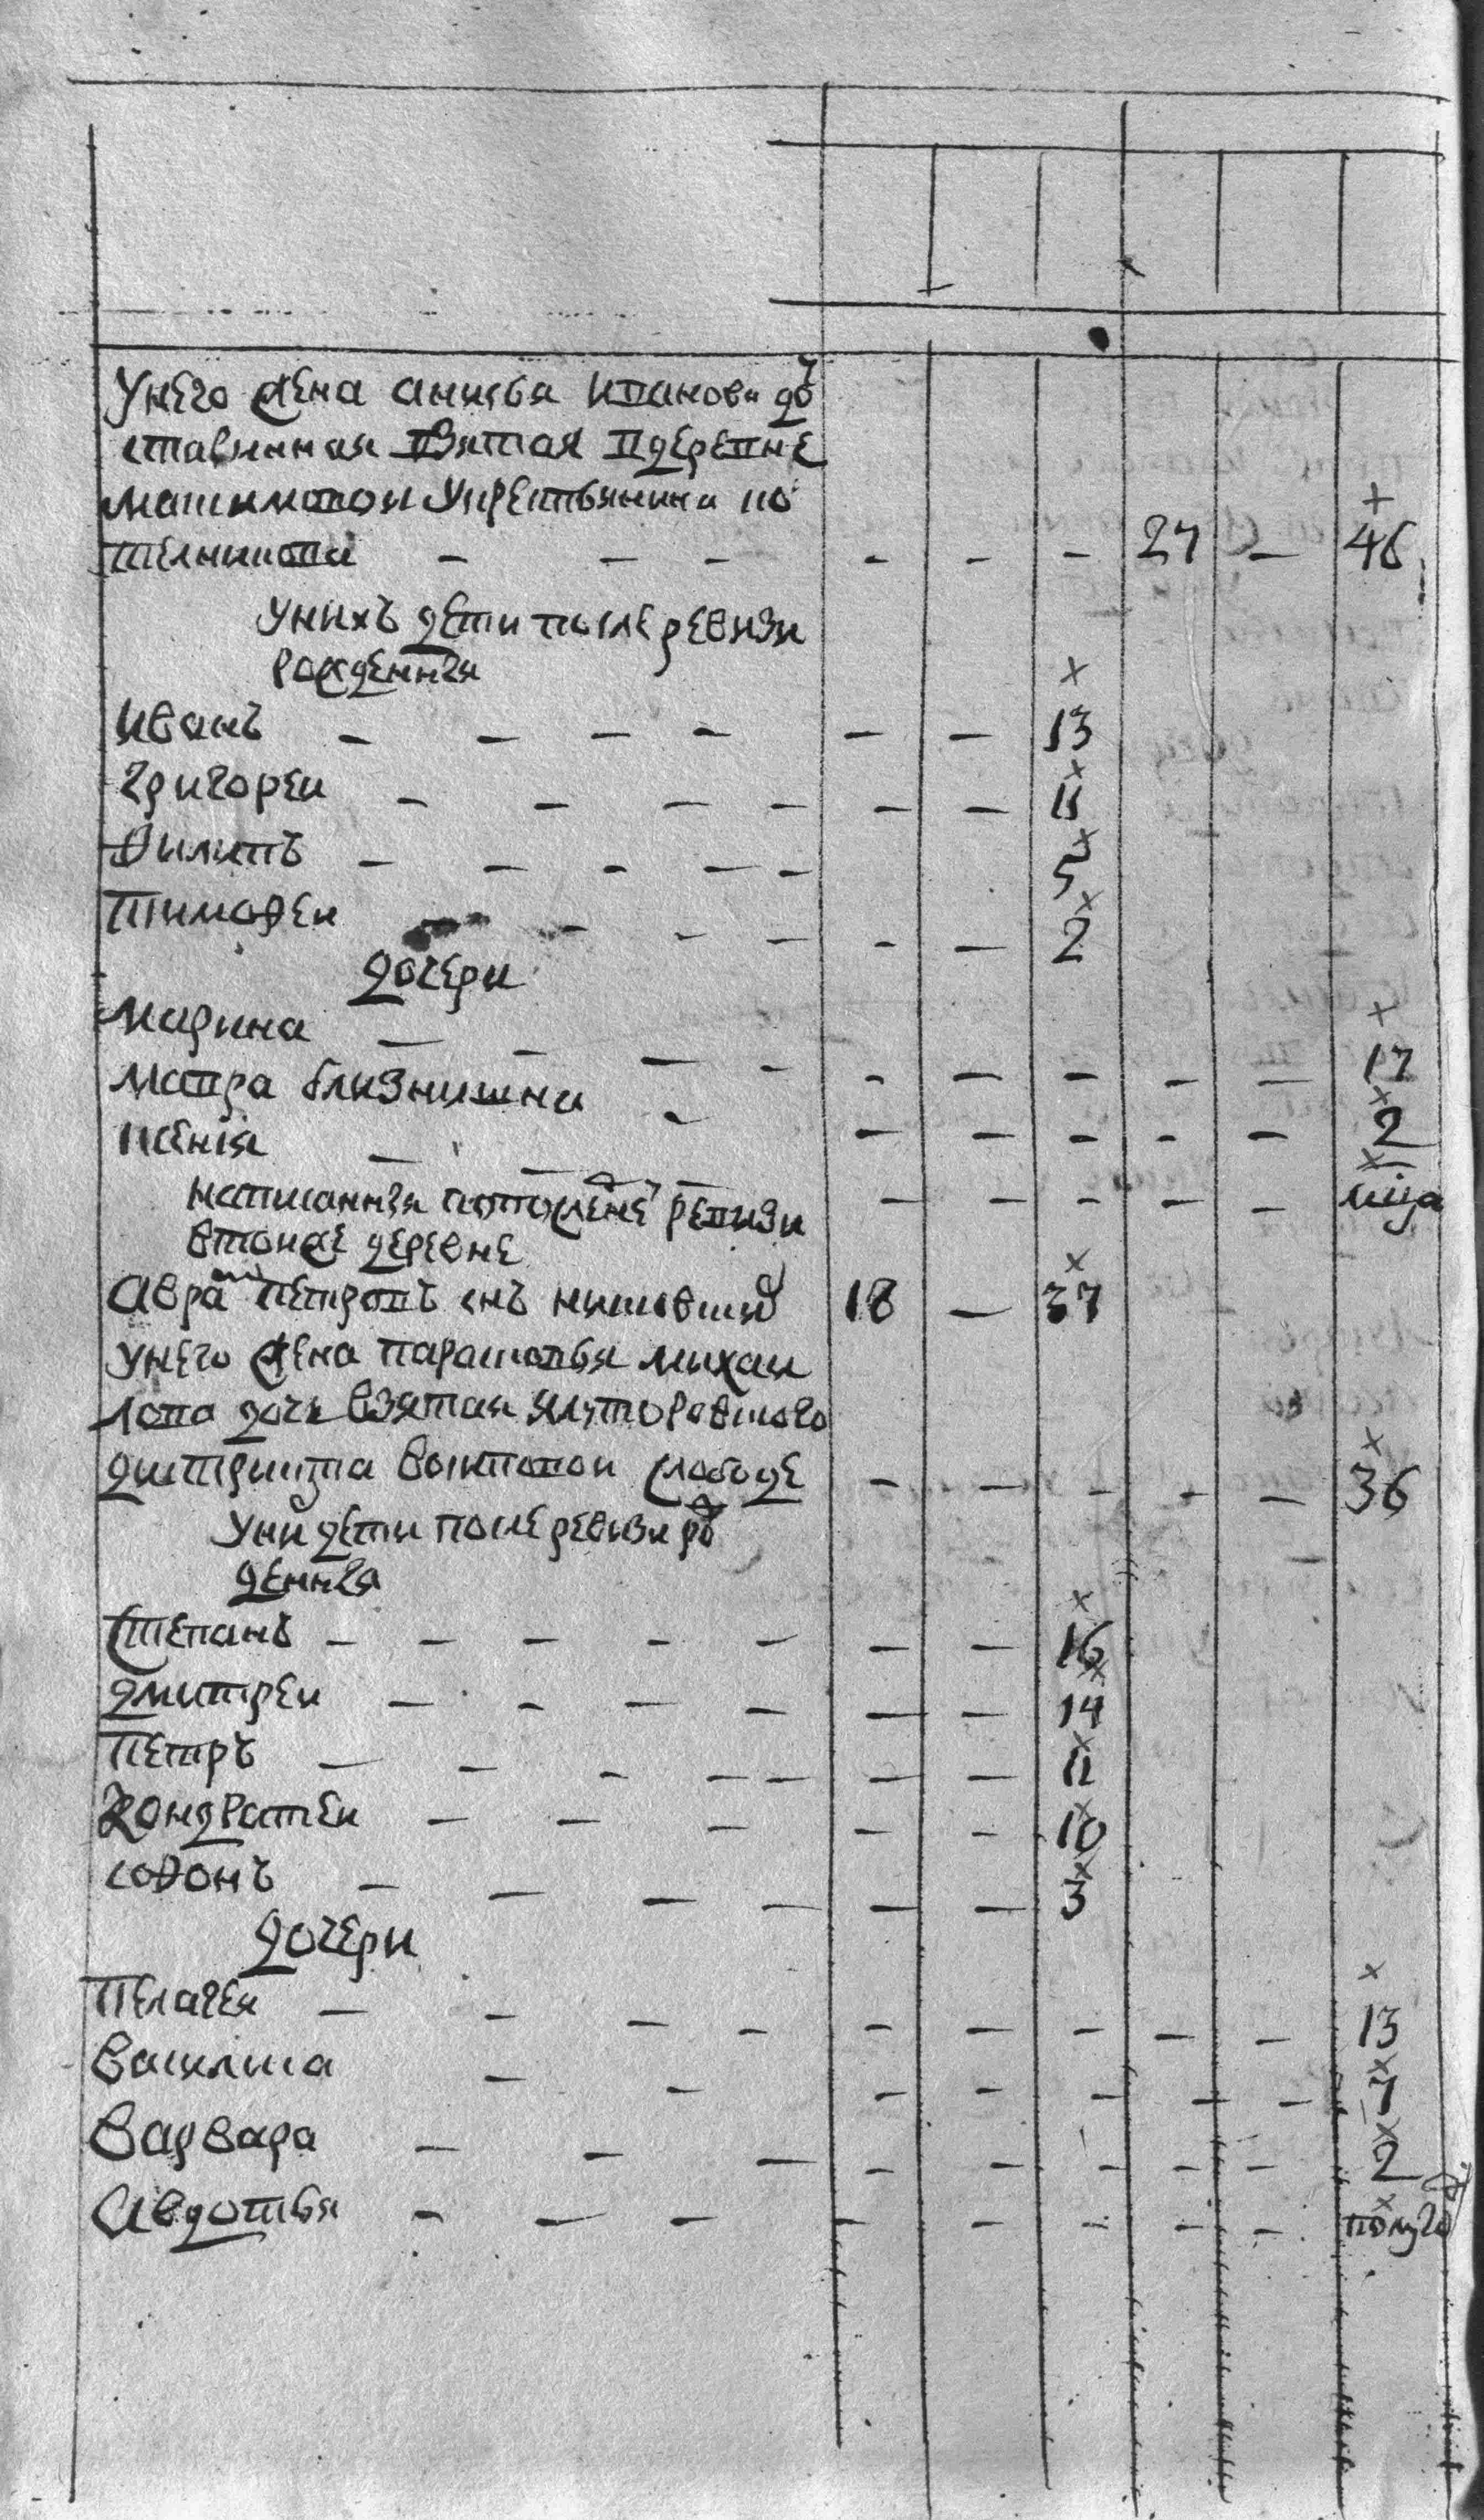 унего жена анисья иванова доч
ставленная взятая вдеревне
мошимовой укрестьянина ко
тельникова — — — — — — 27 — 46
унихъ дети после ревизи
рожденныя
иванъ — — — — — — 13
григореи — — — — — — 11
Филипъ — — — — — 5
тимофеи — — — — — — 2
дочери
марина — — — — — — — — — 17
мавра близнишни — — — — — — 2
ксенья — — — — — — — — мца
написанныя попрежней ревизи
втойже деревне
аврам петровъ снъ киковской 18 — 37
унего жена парасковья михаи
лова дочь взятая ялуторовского
дистрикта вкиповой слободе — — — — — 36
уних дети после ревизи рож
денныя
степанъ — — — — — — — 16
дмитреи — — — — — — 14
петръ — — — — — — — 11
кондратеи — — — — — 10
софонъ — — — — — — 3
дочери
пелагея — — — — — — — — — 13
василиса — — — — — — — 7
варвара — — — — — — — — 2
авдотья — — — — — — — — полугод